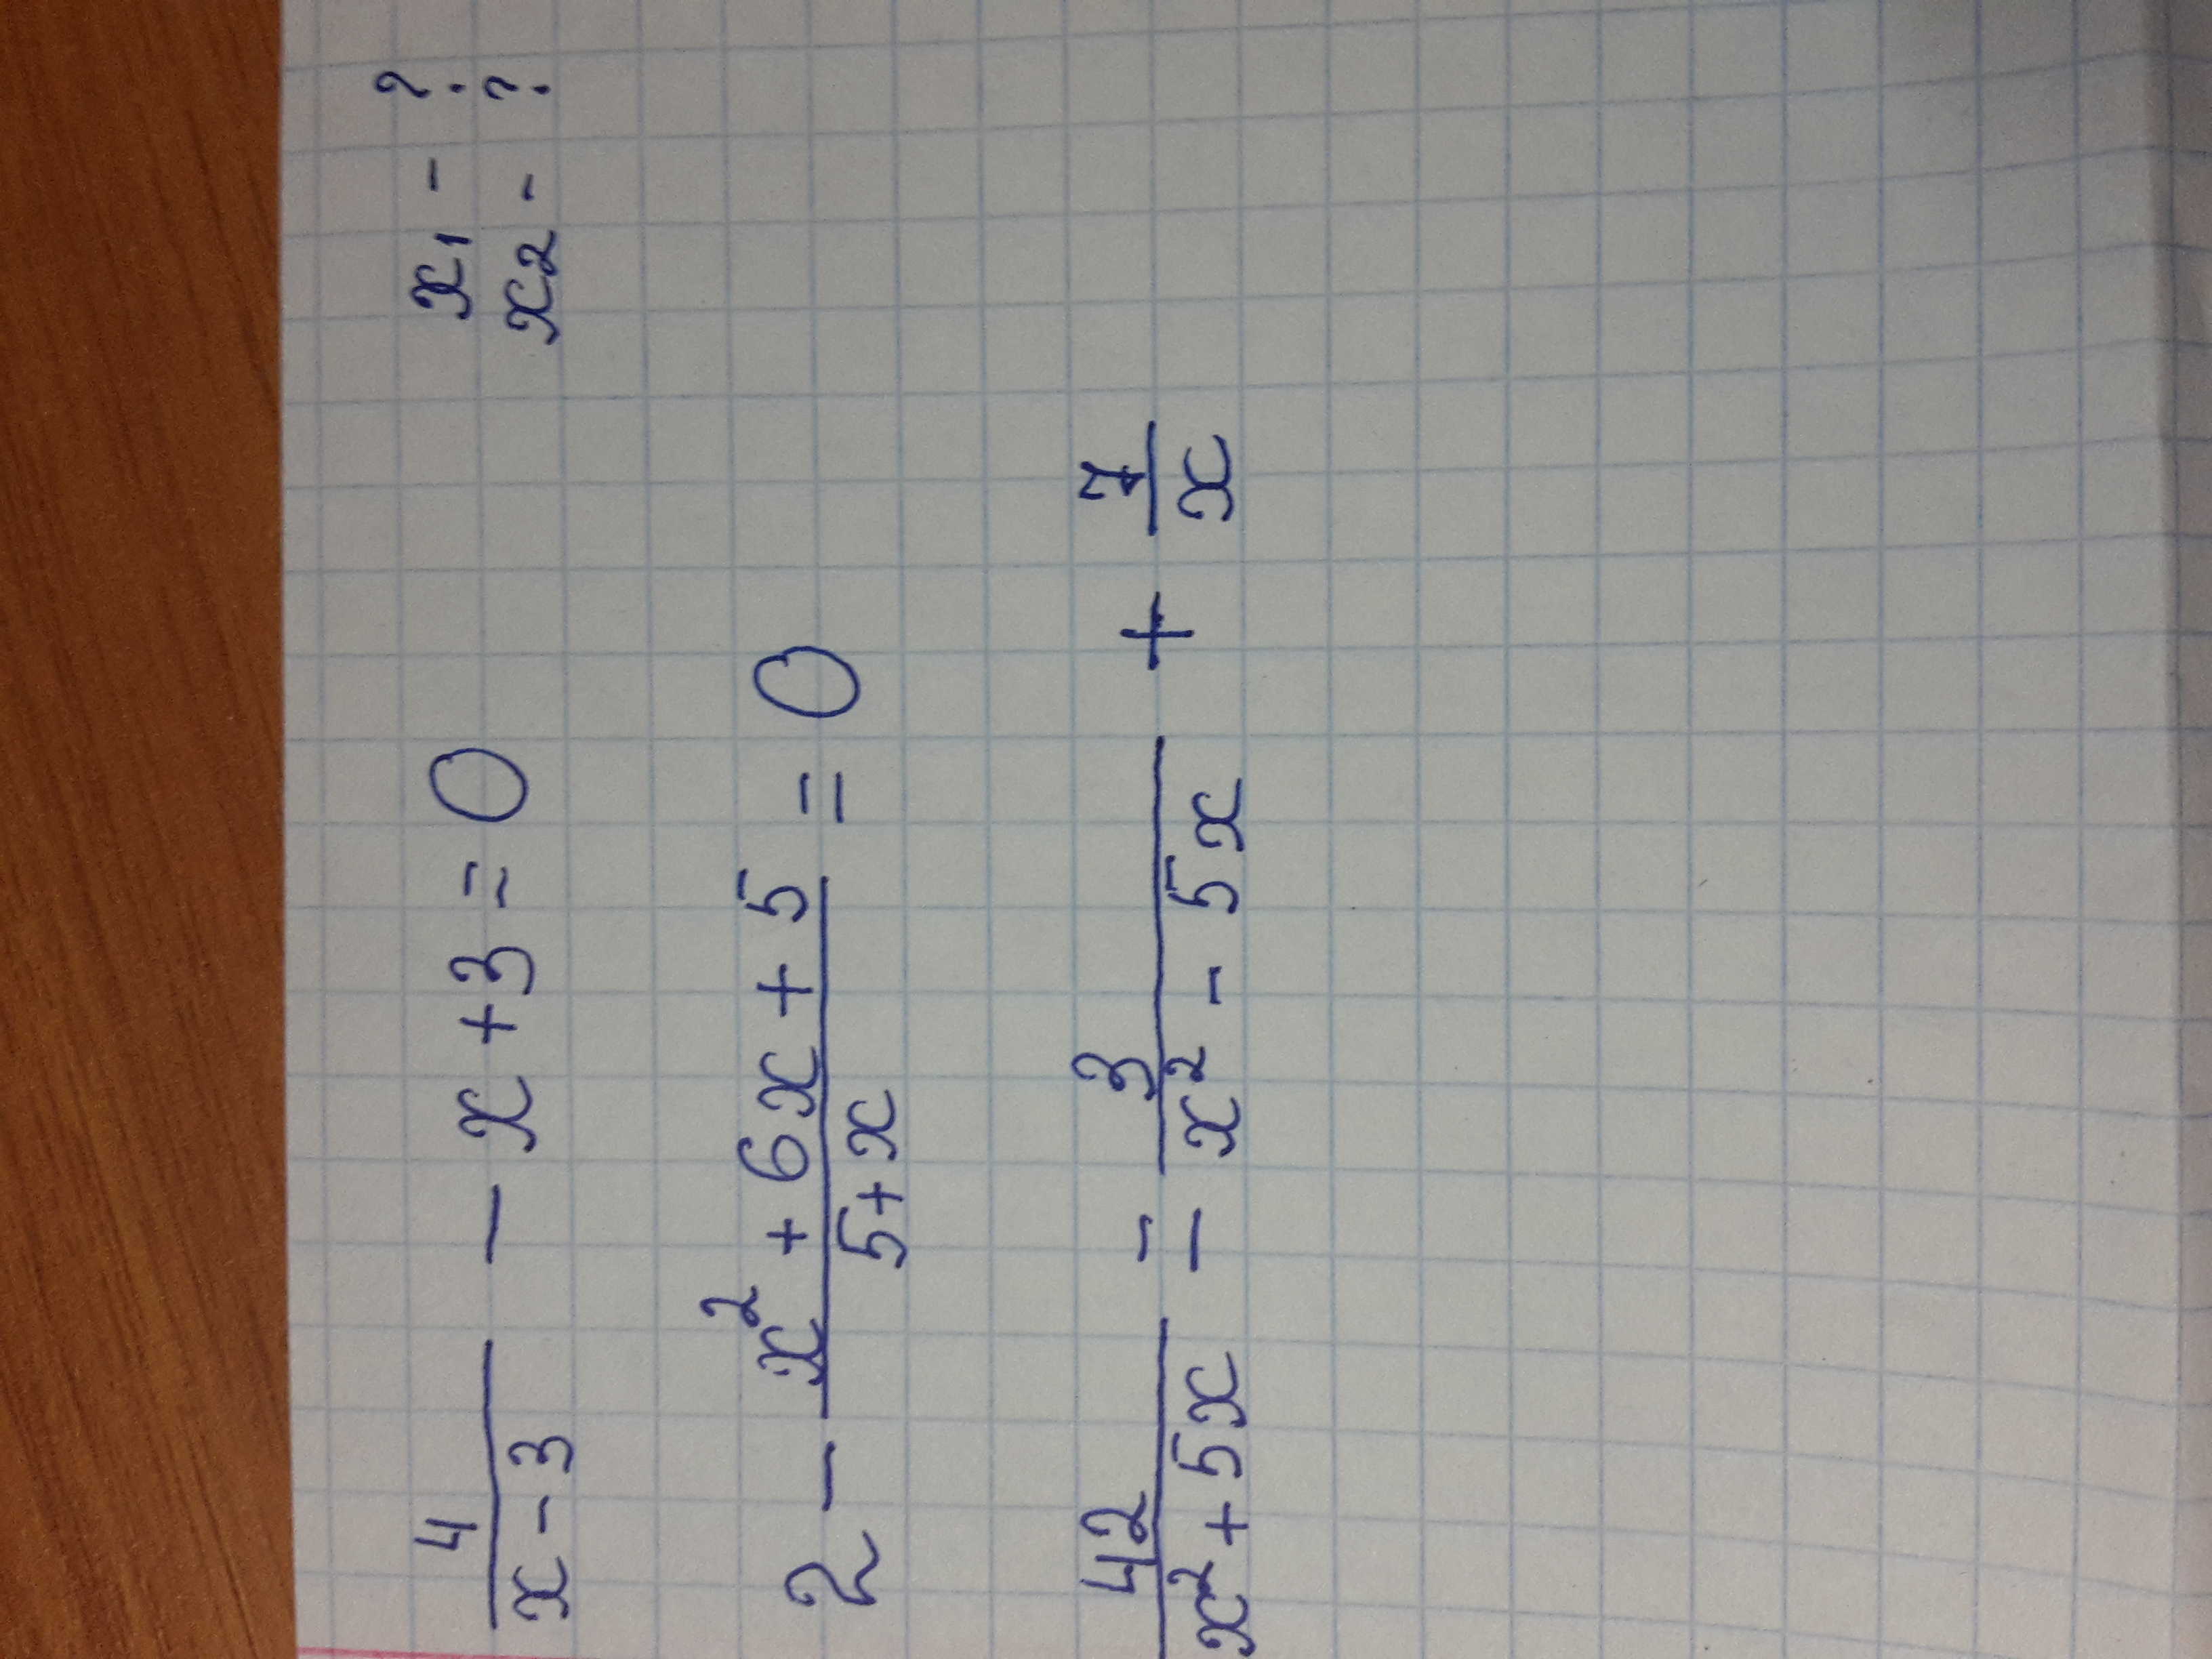 4/(x - 3) - x + 3 = 0    x1 - ?
x2 - ?
2 - (x² + 6x + 5)/(5 + x) = 0
42/(x² + 5x) = 3/(x² - 5x) + 7/x